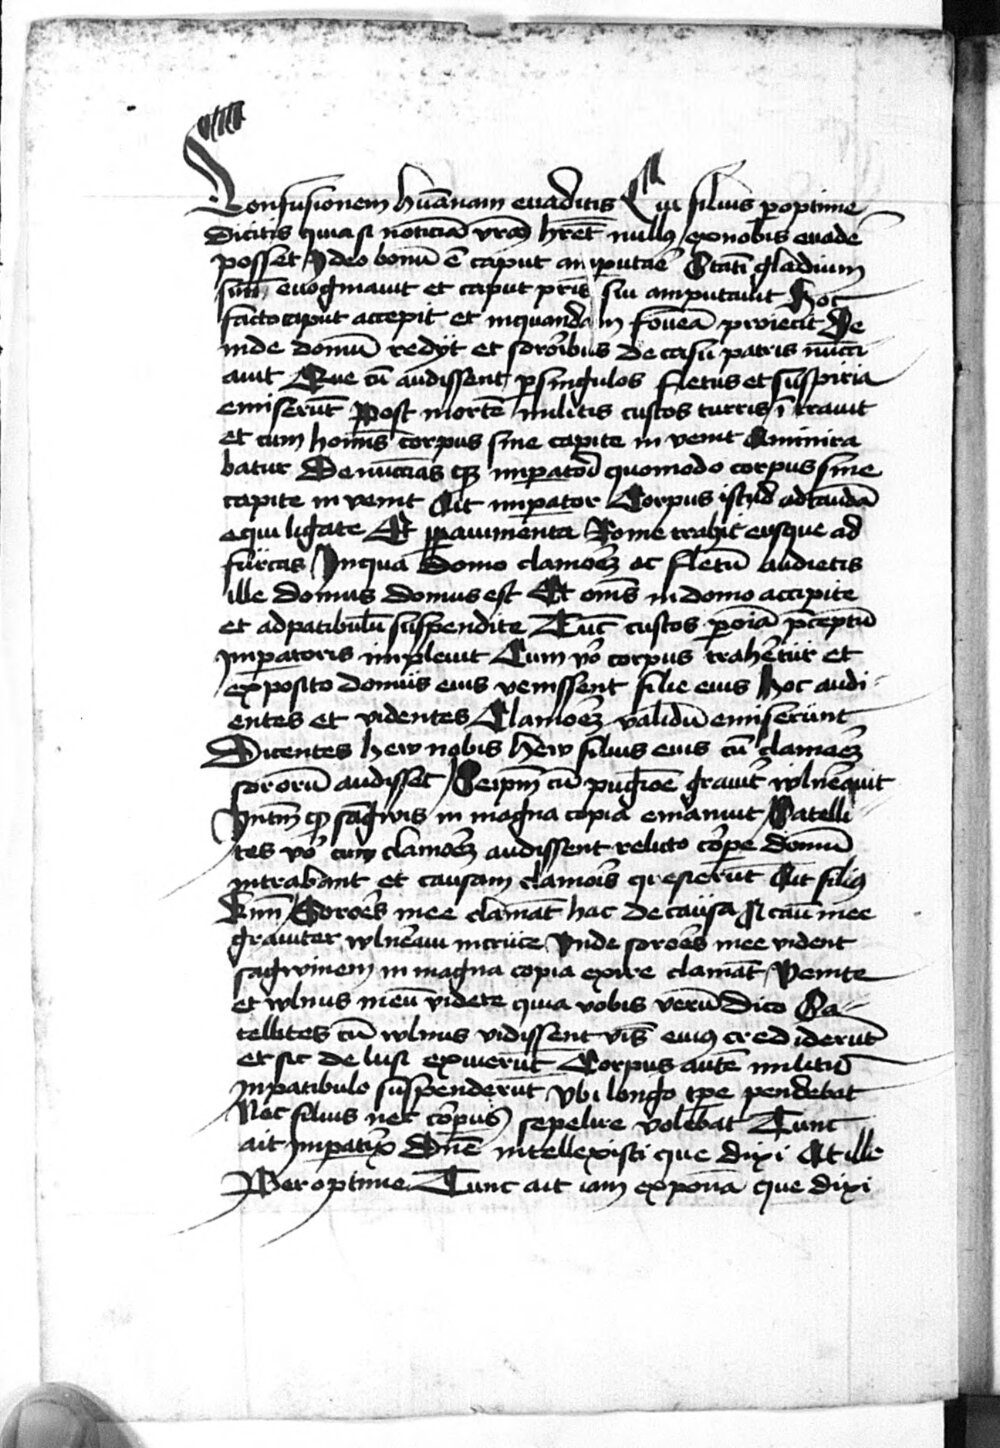 Confusionem hūanam evaditis Cui filius poptime
Dicitis quia si noticiā vrām hrēt nullus ex nobis evadē
posset Ideo bonū ē caput amputare Statī gladium
suū evaginavit et caput pris sui amputavit Hoc
facto caput accepit et in quandam foveā proiecit De
inde domū redijt et sororibus de casu patris nūcci
avit Que cū audissent p singulos fletus et suspiria
emiserūt Post mortē militis custos turris ītravit
et cum homīs corpus sine capite in venit Ammira
batur Denūccians qz impatori quomodo corpus sine
capite in venit Ait impator Corpus istud ad caudā
equi ligate Et p pavimenta Rome trahite usque ad
furcas In qua domo clamorē ac fletū audietis
ille domus domus est Et omīs in domo accipite
et ad patibulū suspendite Tūc custos p oīa pceptū
Impatoris implevit Cum vō corpus trahēretur et
ex posito domus eius venissent filie eius Hoc audi
entes et videntes Clamorē validū emiserunt
Dicentes hew nobis hew filius eius cū clamorē
sororū audisset Seipm cū pugione gravitē wlnēravit
Intm qz sāgwis in magna copia emanavit Satelli
tes vō cum clamorē audissent relicto corpe domū
intrabant et causam clamoris qresierūt Ait filius
Sorores mee clamāt hac de causa
graviter wlnēravi Unde sorores mee vident
sagwinem in magna copia exire clamāt Venite
et wlnus meū videte quia vobis verū dico Sa
tellites cū wlnus vidissent vbīs eius crediderūt
et sic delusi exiverūt Corpus autē militis
in patibulo suspenderūt ubi longo tpe pendebat
Nec filius nec corpus sepelire volebat Tunc
ait Impatrix Dnē intellexisti que dixi At ille
Per optime Tunc ait iam exponā que dixi